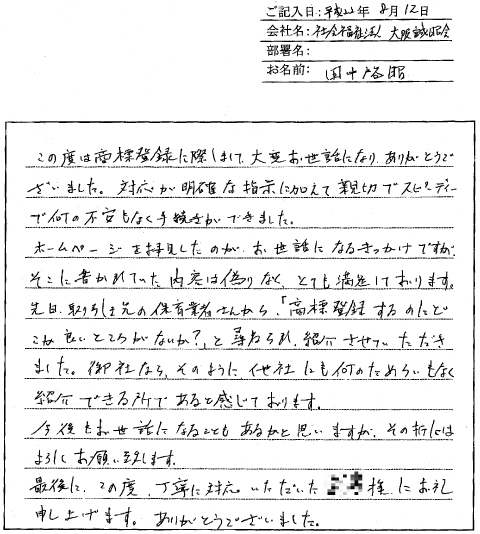 ご記入日:平成22年 8月12日
会社名:社会福祉法人 大阪誠昭会
部署名:
お名前: 田中啓昭
この度は商標登録に際しまして、大変お世話になり、ありがとうで
ざいました。対応が明確な指示に加えて親切でスピーディー
で何の不安もなく手続きができました。
ホームページを拝見したのが、お世話になるきっかけですが、
そこに書かれていた内容は偽りなく、とても満足しております。
先日、取引き先の保育業者さんから、「商標登録するのにど
こか良いところがないか?」と尋ねられ、紹介させていただき
ました。御社なら、そのように他社にも何のためらいもなく
紹介できる所であると感じております。
今後もお世話になることもあるかと思いますが、その折には
よろしくお願い致します。
最後に、この度、丁寧に対応いただいた 様にお礼
申し上げます。ありがとうございました。